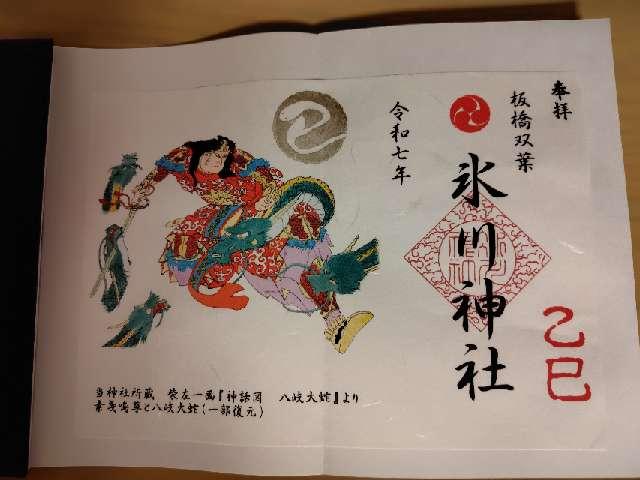 奉拝
板橋双葉
氷川神社
乙巳
令和七年
当神社所蔵 柴左一画『神話図 八岐大蛇』より
素戔嗚尊と八岐大蛇(一部復元)